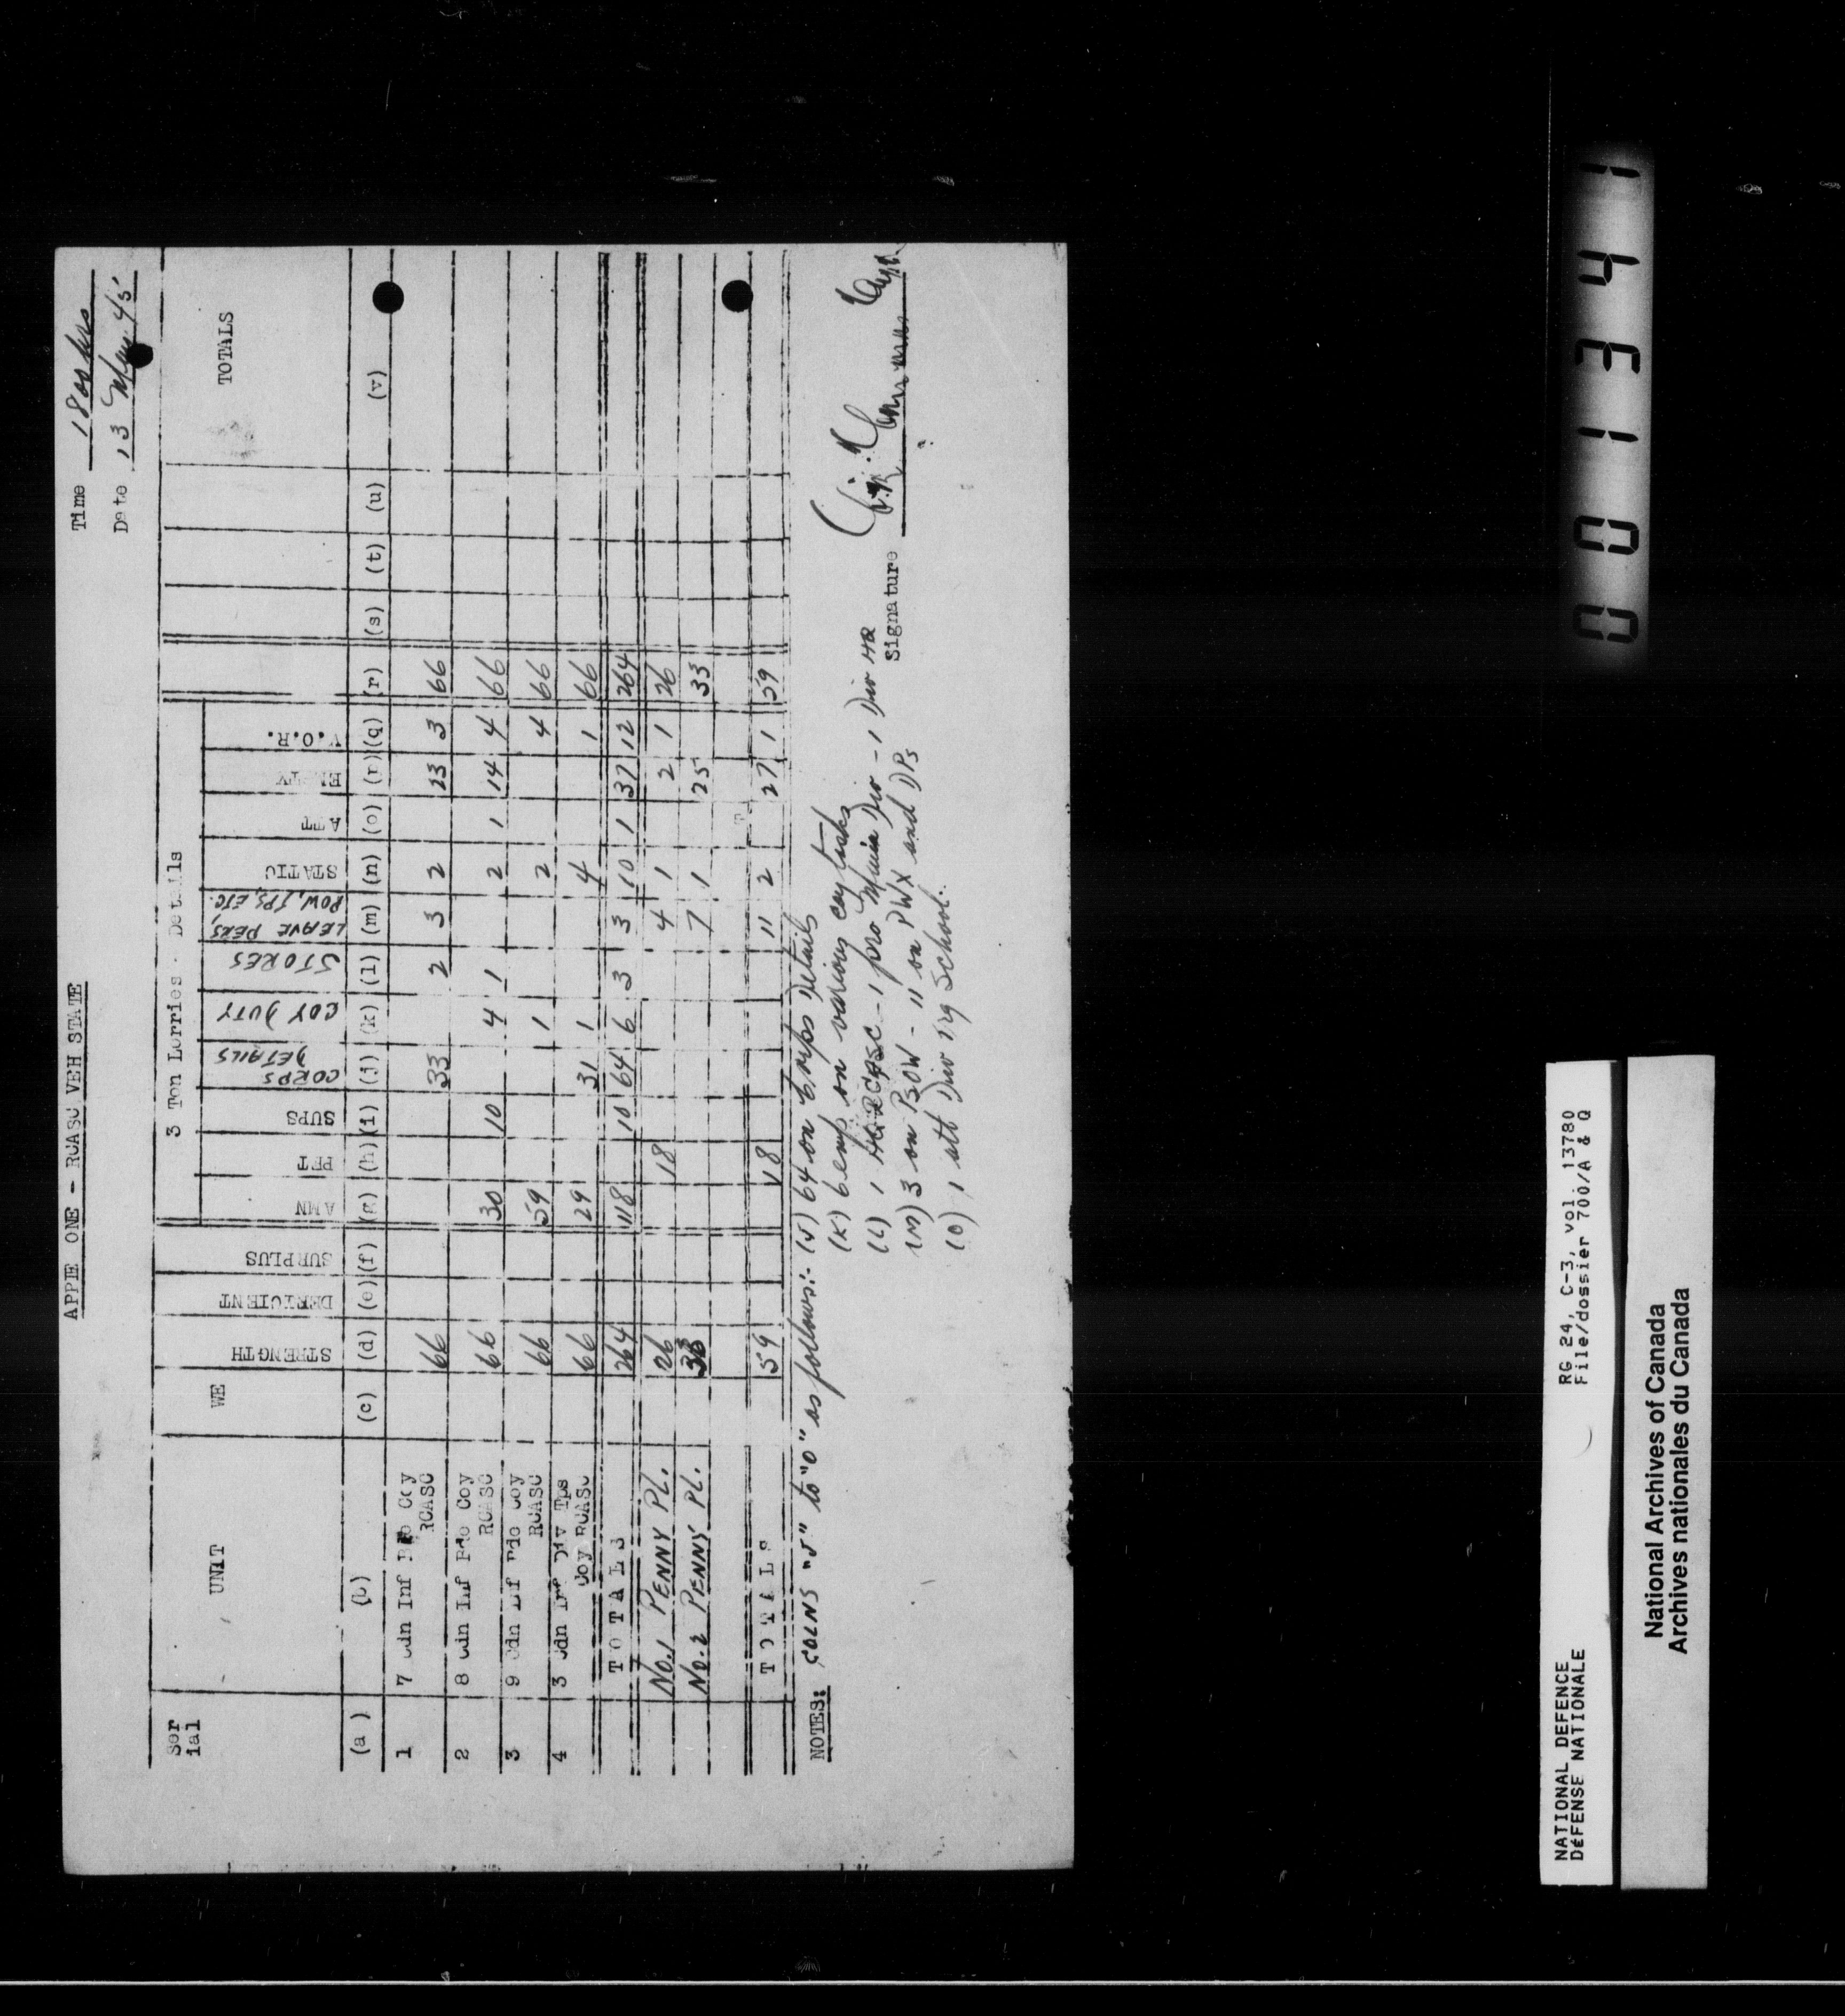 APPIE ONE - RCASC VEH STATE
Time 1800 hrs
Date 13 May 45
Ser ial UNIT WE STRENGTH DERICIENT SURPLUS 3 Ton Lorries - Details TOTALS
AMN PET SUPS CORPS DETAILS COY DUTY STORES LEAVE PERS, POW, DPS, ETC. STATIC ATT EMPTY V.O.R.
(a) (b) (c) (d) (e) (f) (g) (h) (i) (j) (k) (l) (m) (n) (o) (p) (q) (r) (s) (t) (u) (v)
1 7 Cdn Inf Bde Coy RCASC 66 33 2 3 2 23 3 66
2 8 Cdn Inf Bde Coy RCASC 66 30 10 4 1 2 1 14 4 66
3 9 Cdn Inf Bde Coy RCASC 66 59 1 2 4 66
4 3 Cdn Inf Div Tps Coy RCASC 66 29 31 1 4 1 66
TOTALS 264 118 10 64 6 3 3 10 1 37 12 264
No.1 PENNY PL. 26 18 4 1 2 1 26
No.2 PENNY PL. 33 7 1 25 33
TOTALS 59 18 11 2 27 1 59
NOTES: COLNS "J" to "O" as follows:- (J) 64 on Corps Details
(K) 6 emp on various coy tasks
(L) 1 HQ RCASC - 1 pro Main Div - 1 Div HQ
(M) 3 on POW - 11 on PWX and DPs
(O) 1 att Div Trg School.
Signature Capt
001341
NATIONAL DEFENCE RG 24, C-3, vol. 13780
DÉFENSE NATIONALE File/dossier 700/A & Q
National Archives of Canada
Archives nationales du Canada